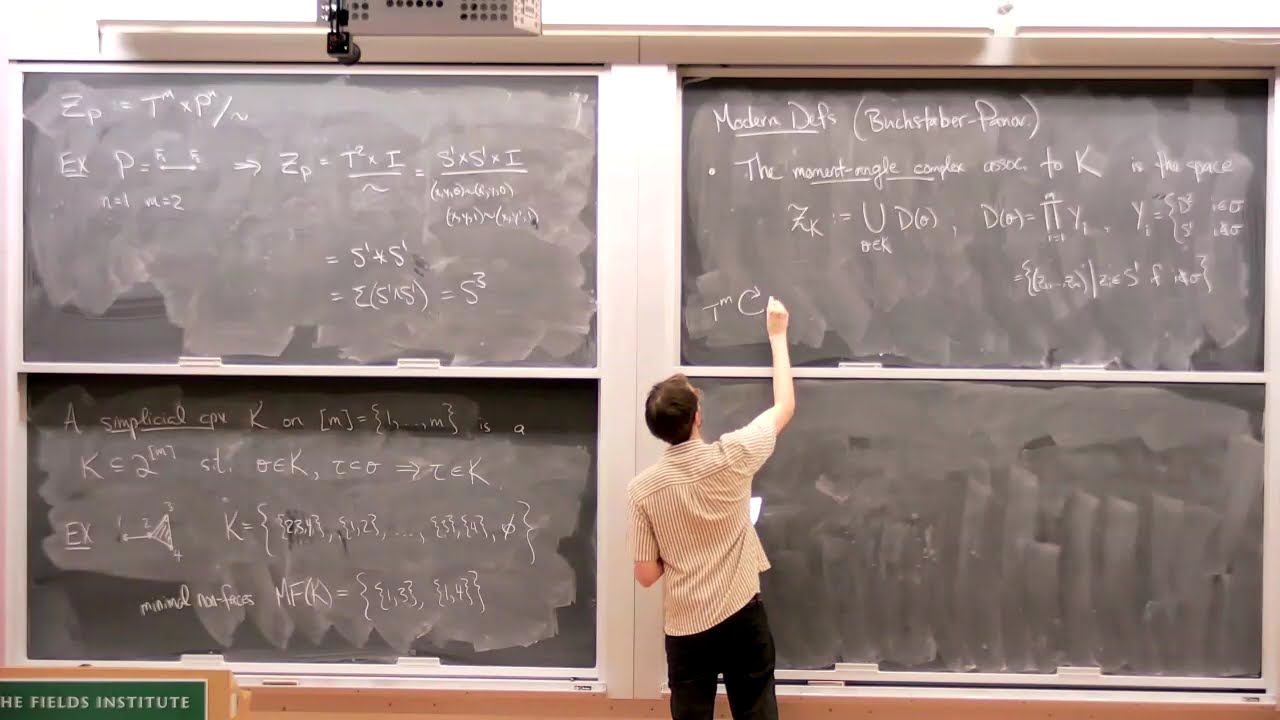 Z_P := T^m × P^n / ~
Ex P = F₁ F₂ ⟹ Z_P = T² × I / ~ = S¹×S¹×I / (x,y,0)~(x',y,0) (x,y,1)~(x,y',1)
n=1 m=2
= S¹ * S¹
= Σ(S¹∧S¹) = S³
A simplicial cpx K on [m] = {1,...,m} is a
K ⊆ 2^[m] s.t. σ∈K, τ⊂σ ⟹ τ∈K.
Ex 1 2 3 4 K = { {2,3,4}, {1,2}, ..., {3},{4}, ∅ }
minimal non-faces MF(K) = { {1,3}, {1,4} }
Modern Defs (Buchstaber-Panov)
• The moment-angle complex assoc. to K is the space
Z_K := ⋃_{σ∈K} D(σ), D(σ) = ∏_{i=1}^m Y_i, Y_i = { D² i∈σ S¹ i∉σ
= {(z₁,...,z_m) | z_i ∈ S¹ if i∉σ}
T^m
THE FIELDS INSTITUTE